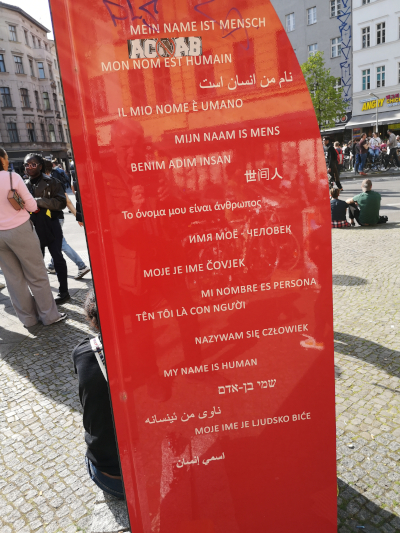 MEIN NAME IST MENSCH
ACAB
MON NOM EST HUMAIN
نام من انسان است
IL MIO NOME È UMANO
MIJN NAAM IS MENS
BENIM ADIM INSAN
世间人
Το όνομα μου είναι άνθρωπος
ИМЯ МОЁ - ЧЕЛОВЕК
MOJE JE IME ČOVJEK
MI NOMBRE ES PERSONA
TÊN TÔI LÀ CON NGƯỜI
NAZYWAM SIĘ CZŁOWIEK
MY NAME IS HUMAN
שמי בן-אדם
ناوی من ئینسانە
MOJE IME JE LJUDSKO BIĆE
اسمي إنسان
ANGRY